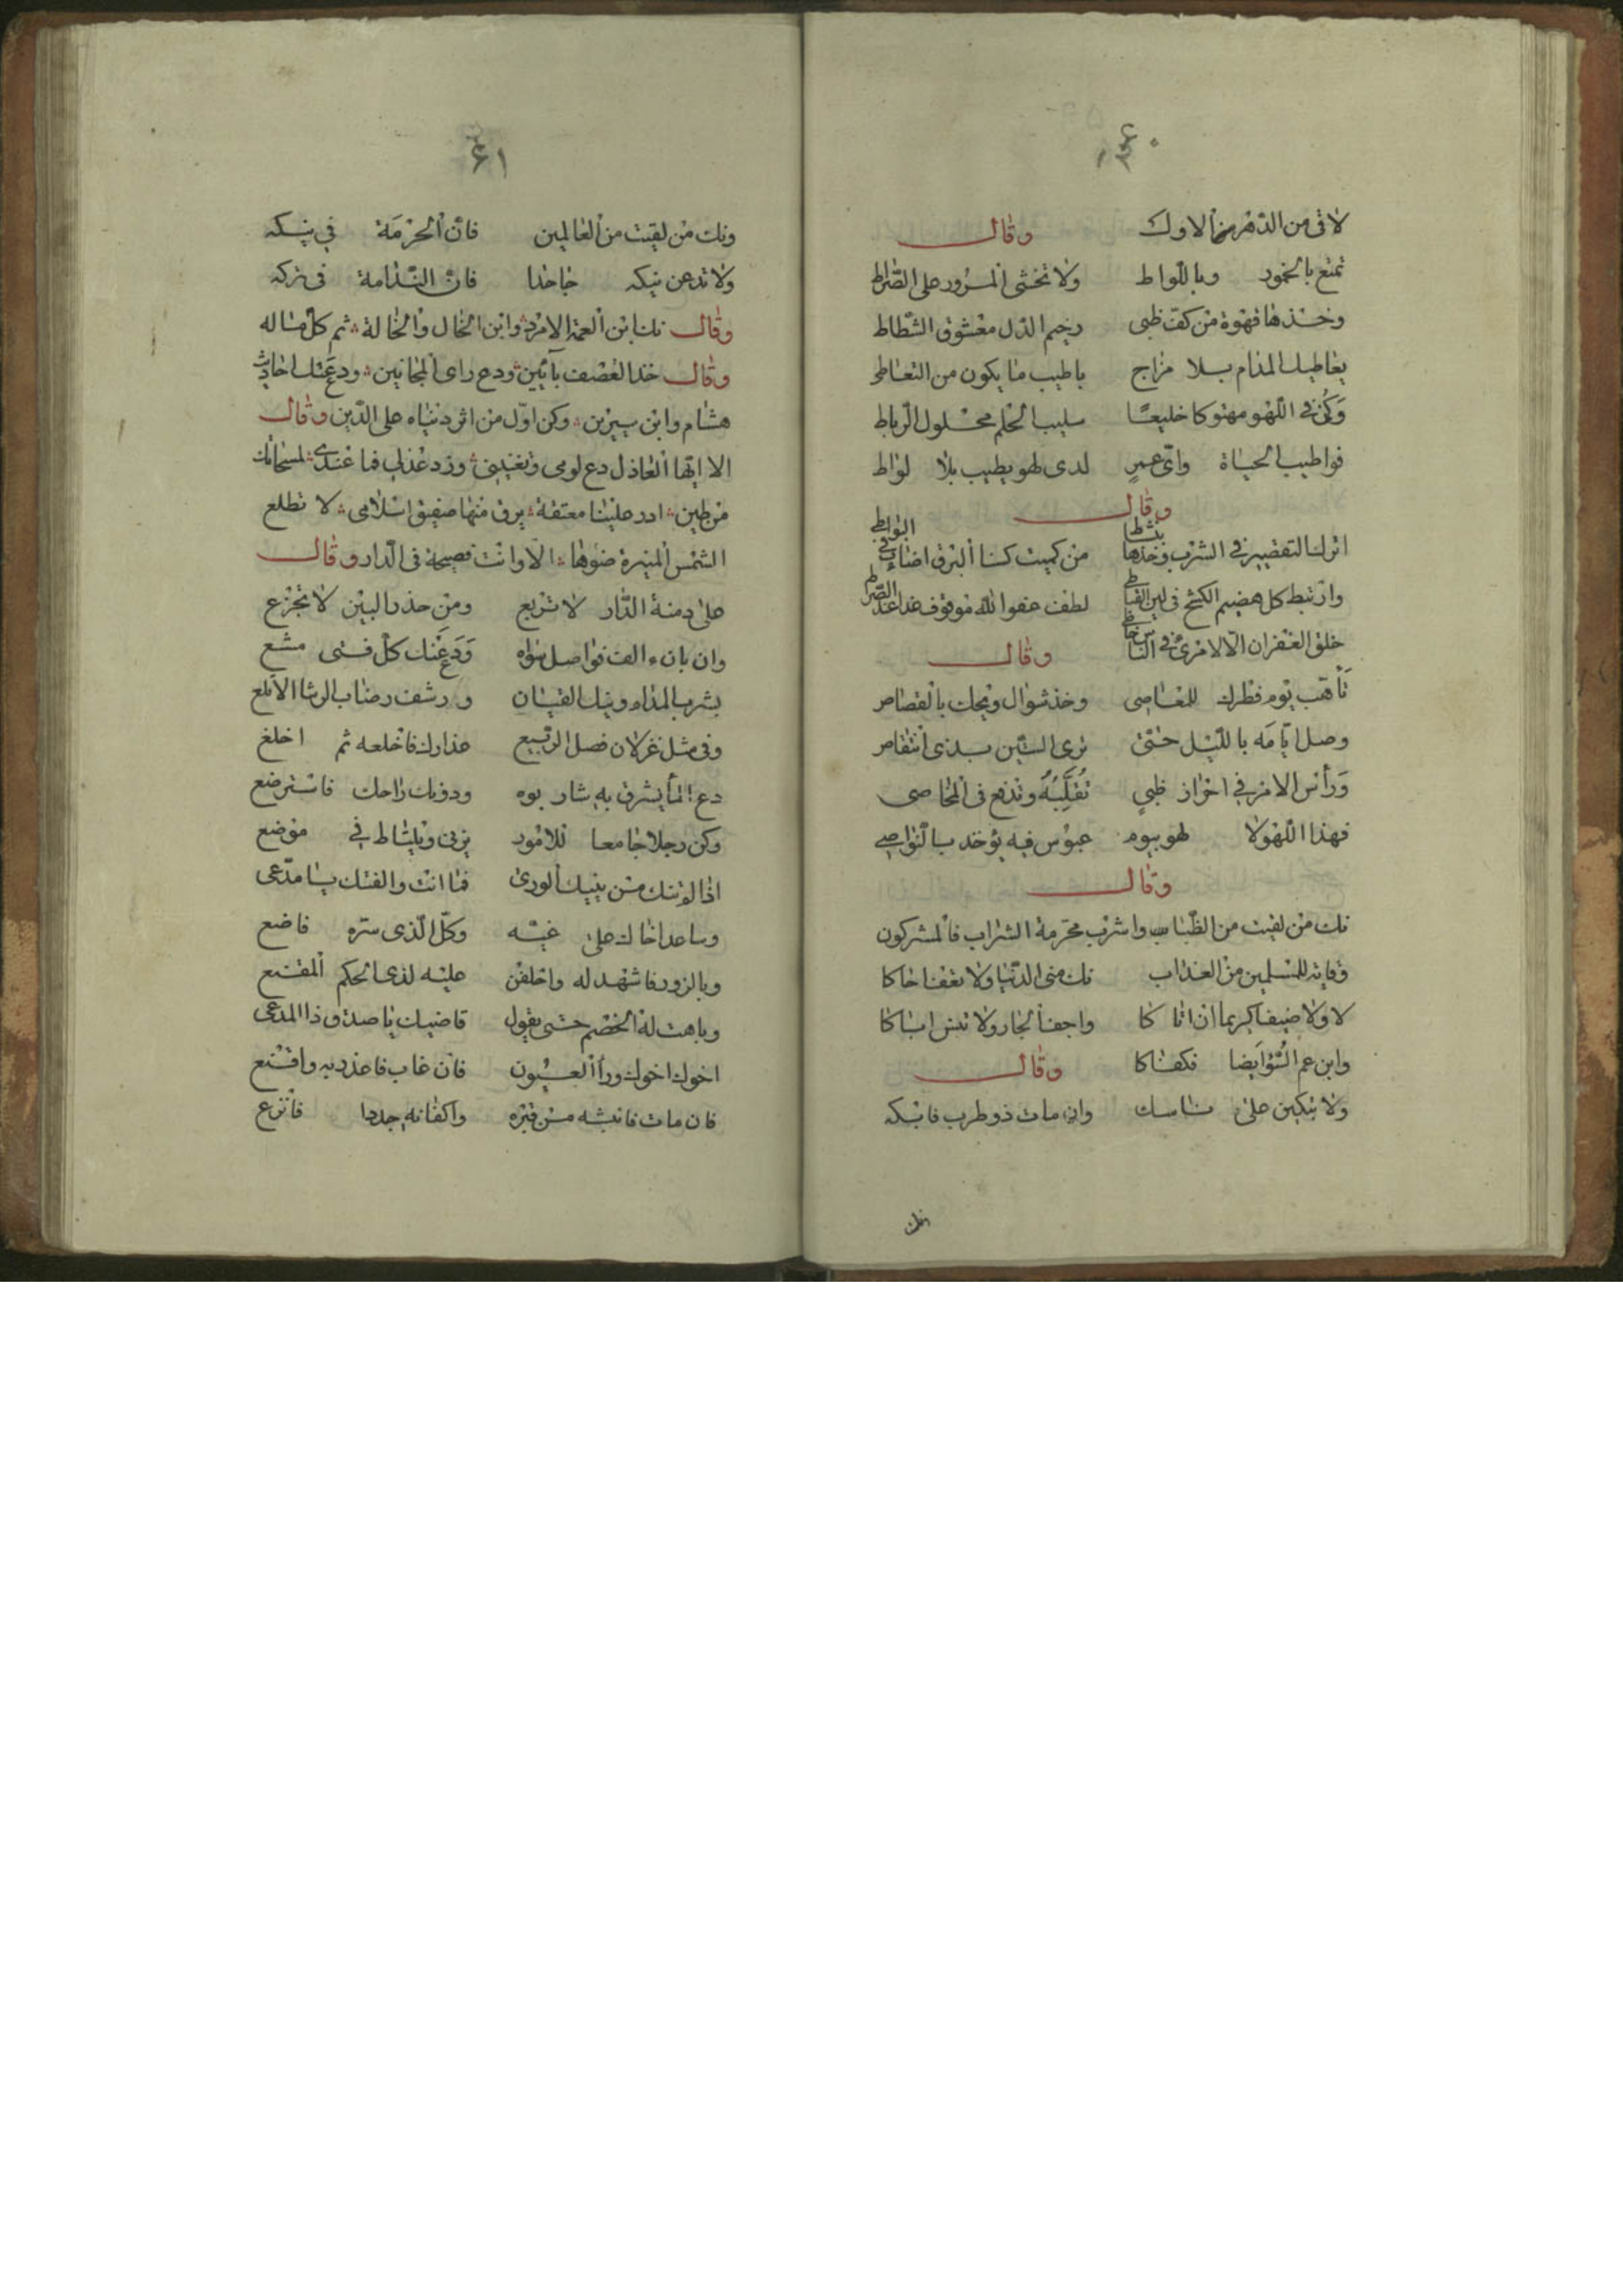 ٦٠
لاقى من الدهر الاوك وقال
تمتع بالخمور وباللواط ولا تخشى المرور على الصراط
وخذها قهوة من كف ظبى رخيم الدل معشوق الشطاط
يعاطيك المدام بلا مزاج باطيب ما يكون من التعاطى
وكن فى اللهو مهتوكا خليعا سليب الحلم محلول الرباط
فواطيب الحياة واى عمر لدى لهو يطيب بلا لواط
وقال
اترك التقصير فى الشرب وخذها بنشاط من كميت كسنا البرق اضاء فى البواطى
وارتبط كل هضيم الكشح فى لين القباطى لطف عفو الله موقوف غدا عند الصراط
خلق الغفران الا لامرئ فى الناس خاطى وقال
تأهب يوم فطرك للمعاصى وخذ شوال ويحك بالقصاص
وصل ايامه بالليل حتى ترى الستين بدى انتقاص
ورأس الامر فى احراز ظبي تقلبه وتدفع فى المخاصى
فهذا اللهو لا لهو بيوم عبوس فيه يؤخذ بالنواصي
وقال
نك من لقيت من الظباب واشرب محرمة الشراب فالمشركون
وقاية للمسلمين من العذاب نك منى الدنيا ولا تعفف اخاكا
لا ولا ضيفا كريما ان اتاكا واجف الجار ولا تنس اباكا
وابن عم السوء ايضا فكفاكا وقال
ولا تبكين على ناسك وان مات ذو طرب فابكه
ونك
٦١
ونك من لقيت من العالمين فان الحزمة في نيكه
ولا تدعن نيكه جاحدا فان الندامة فى تركه
وقال نك ابن العمة الامرد وابن الخال والخالة ثم كل ماله
وقال خذ القصف بآئين ودع راى المجانين ودع عنك احاديث
هشام وابن سيرين وكن اول من اثر دنياه على الدين وقال
الا ايها العاذل دع لومى وتفنيدى وزد عذلى فما عندى لمسخاتك
من طين ادر علينا معتقة يرق منها صفيق اسلامى لا تطلع
الشمس المنيرة ضوءها الا وانت فصيحة فى الدار وقال
على دمنة الدار لا تربع ومن حذر البين لا تجزع
وان بان الف فواصل سواه ودع عنك كل فتى مشبع
بشرب المدام ونيك القيان ورشف رضاب الرشا الاتلع
وفى مثل غزلان فصل الربيع عذارك فاخلعه ثم اخلع
دع الما يشرق به شاربوه ودونك راحك فاسترضع
وكن رجلا جامعا للامور يزنى ويلتاط في موضع
اذا لم تنك من ينيك الورى فما انت والفتك يا مدعى
وساعد اخاك على غيه وكل الذى سره فاصنع
وبالزور فاشهد له واحلفن عليه لدى الحكم المقنع
وباهت له الخصم حتى يقول قاضيك يا صدق ذا المدعى
اخوك اخوك وراأ العيون فان غاب فاغدر به واقنع
فان مات فانبشه من قبره واكفانه جددا فانزع